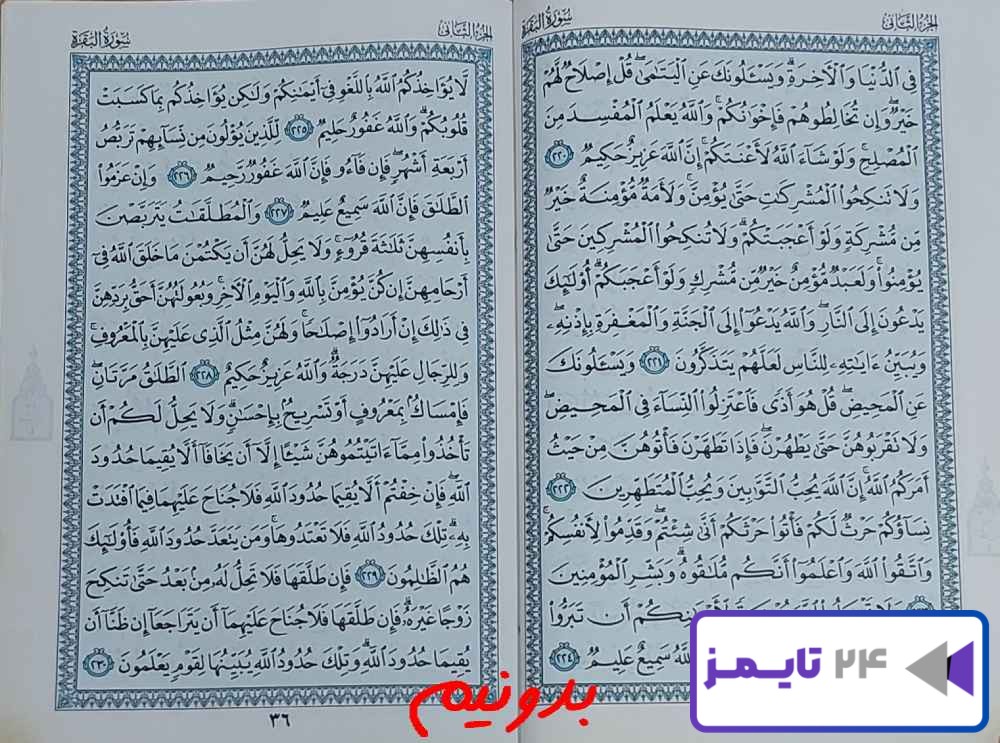 الجزء الثاني
سورة البقرة
في الدنيا والآخرة ويسئلونك عن اليتمى قل إصلاح لهم
خير وإن تخالطوهم فإخونكم والله يعلم المفسد من
المصلح ولو شاء الله لأعنتكم إن الله عزيز حكيم ٢٢٠
ولا تنكحوا المشركت حتى يؤمن ولأمة مؤمنة خير
من مشركة ولو أعجبتكم ولا تنكحوا المشركين حتى
يؤمنوا ولعبد مؤمن خير من مشرك ولو أعجبكم أولئك
يدعون إلى النار والله يدعوا إلى الجنة والمغفرة بإذنه
ويبين ءايته للناس لعلهم يتذكرون ٢٢١ ويسئلونك
عن المحيض قل هو أذى فاعتزلوا النساء في المحيض
ولا تقربوهن حتى يطهرن فإذا تطهرن فأتوهن من حيث
أمركم الله إن الله يحب التوابين ويحب المتطهرين ٢٢٢
نساؤكم حرث لكم فأتوا حرثكم أنى شئتم وقدموا لأنفسكم
واتقوا الله واعلموا أنكم ملقوه وبشر المؤمنين
لأيمنكم أن تبروا
الله سميع عليم ٢٢٤
الجزء الثاني
سورة البقرة
لا يؤاخذكم الله باللغو في أيمنكم ولكن يؤاخذكم بما كسبت
قلوبكم والله غفور حليم ٢٢٥ للذين يؤلون من نسائهم تربص
أربعة أشهر فإن فاءو فإن الله غفور رحيم ٢٢٦ وإن عزموا
الطلق فإن الله سميع عليم ٢٢٧ والمطلقت يتربصن
بأنفسهن ثلثة قروء ولا يحل لهن أن يكتمن ما خلق الله في
أرحامهن إن كن يؤمن بالله واليوم الآخر وبعولتهن أحق بردهن
في ذلك إن أرادوا إصلحا ولهن مثل الذي عليهن بالمعروف
وللرجال عليهن درجة والله عزيز حكيم ٢٢٨ الطلق مرتان
فإمساك بمعروف أو تسريح بإحسن ولا يحل لكم أن
تأخذوا مما ءاتيتموهن شيئا إلا أن يخافا ألا يقيما حدود
الله فإن خفتم ألا يقيما حدود الله فلا جناح عليهما فيما افتدت
به تلك حدود الله فلا تعتدوها ومن يتعد حدود الله فأولئك
هم الظلمون ٢٢٩ فإن طلقها فلا تحل له من بعد حتى تنكح
زوجا غيره فإن طلقها فلا جناح عليهما أن يتراجعا إن ظنا أن
يقيما حدود الله وتلك حدود الله يبينها لقوم يعلمون ٢٣٠
٣٦
بدونیم
۲۴ تایمز